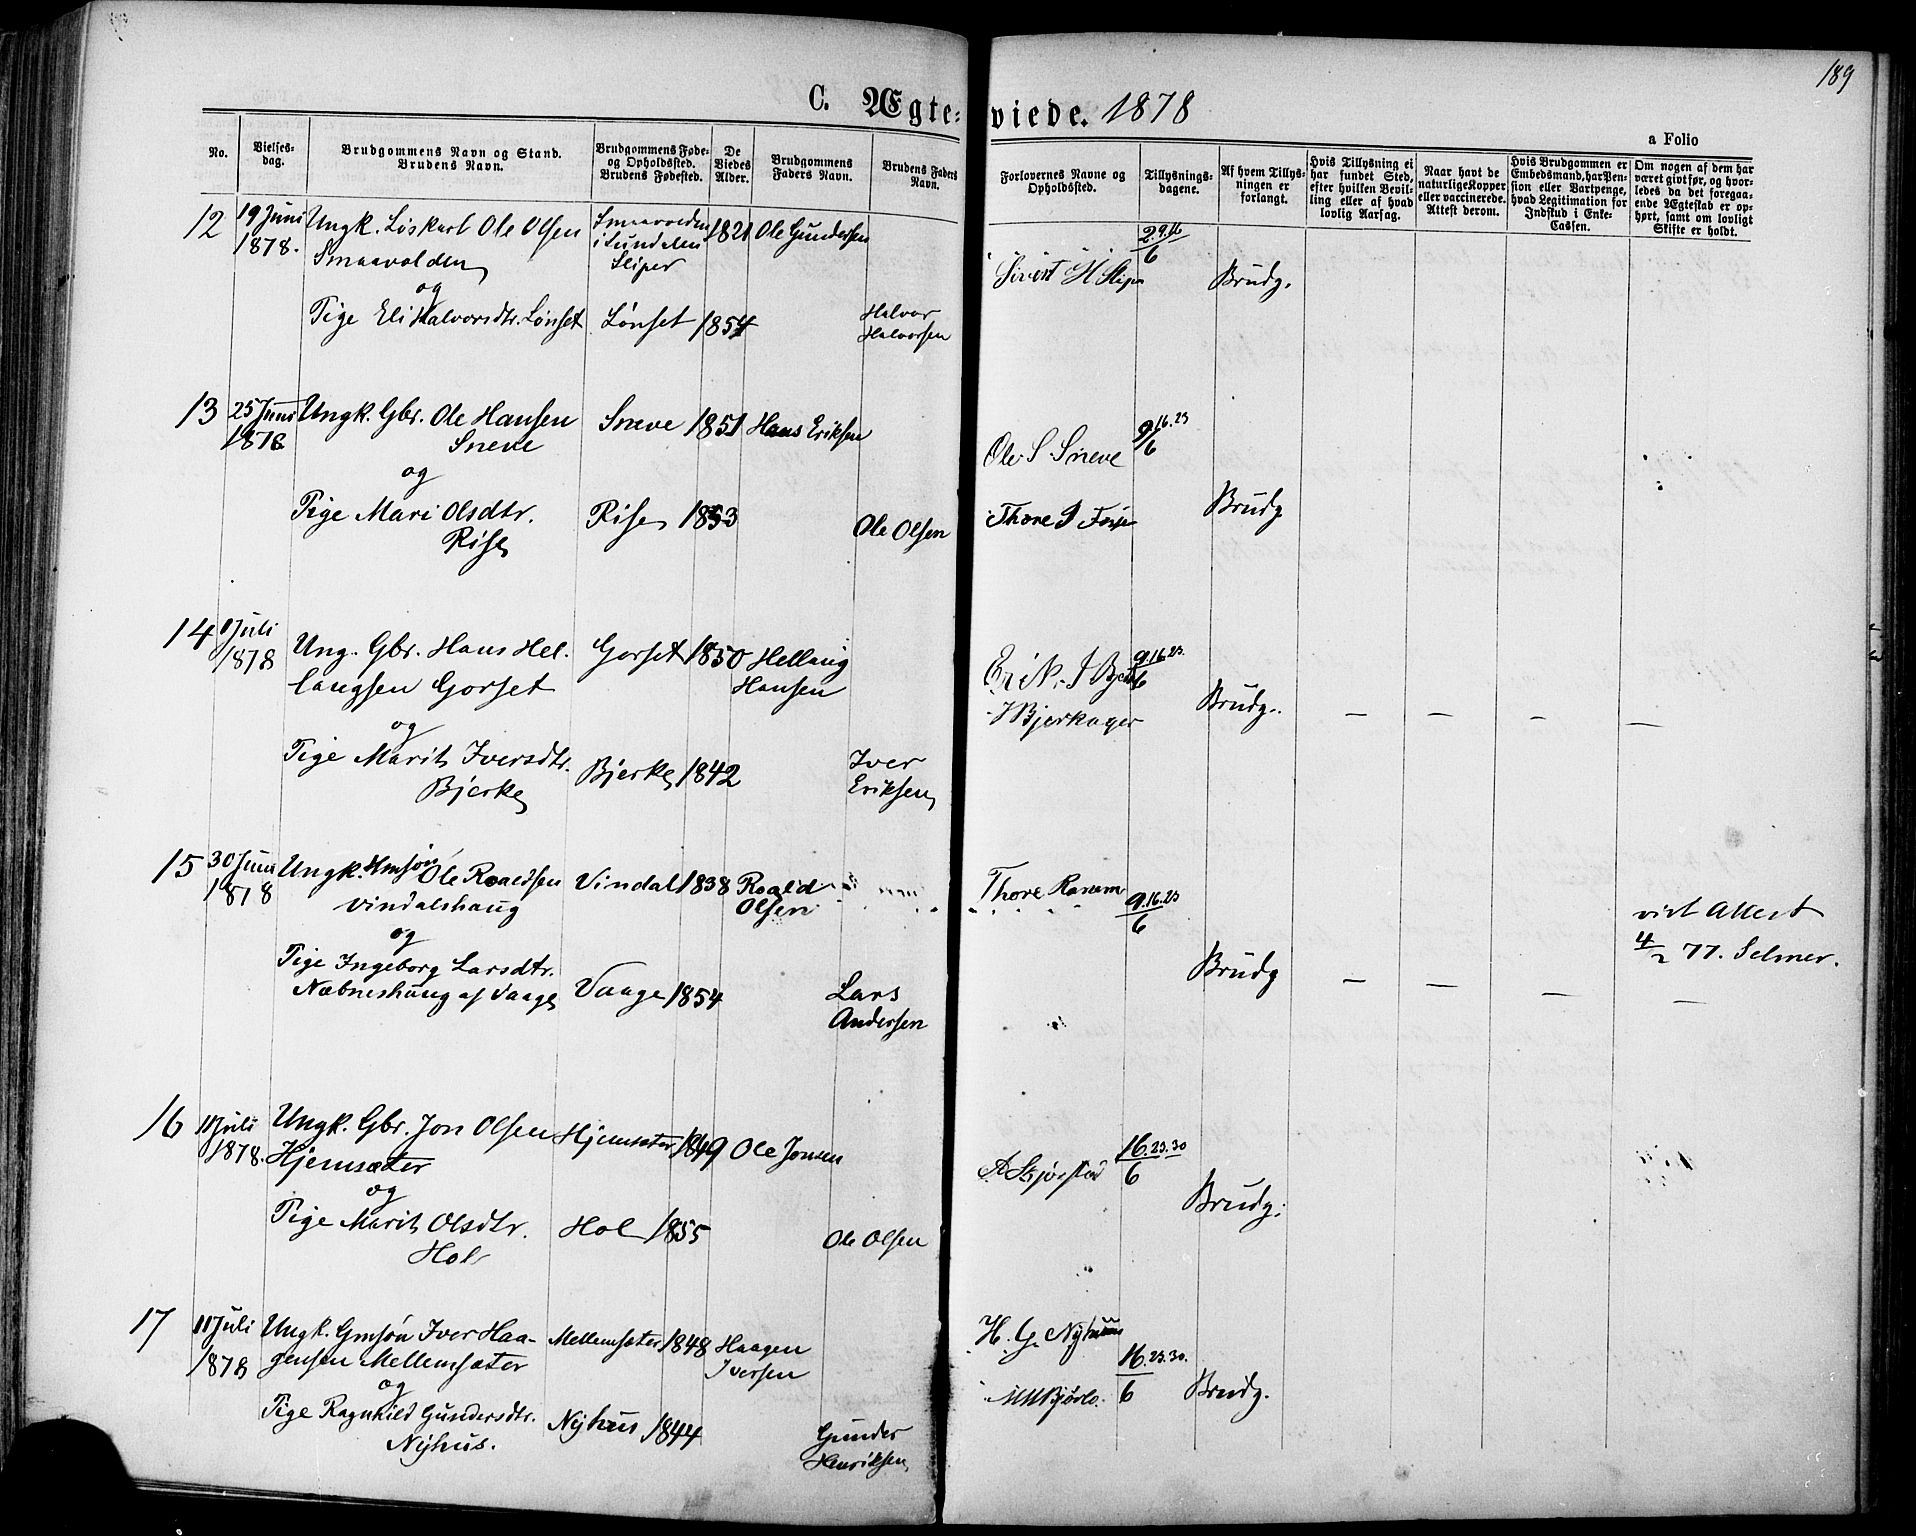 189
C. Ægteviede. 1878
a Folio
No.
Vielsesdag.
Brudgommens Navn og Stand.
Brudens Navn.
Brudgommens Føde- og Opholdssted.
Brudens Fødested.
De Viedes Alder.
Brudgommens Faders Navn.
Brudens Faders Navn.
Forlovernes Navne og Opholdssted.
Tillysningsdagene.
Af hvem Tillysningen er forlangt.
Hvis Tillysning ei har fundet Sted, efter hvilken Bevilling eller af hvad lovlig Aarsag.
Naar havt de naturlige Kopper eller vaccinerede. Attest derom.
Hvis Brudgommen er Embedsmand, har Pension eller Vartpenge, hvad Legitimation for Indskud i Enke-Cassen.
Om nogen af dem har været gift før, og hvorledes da det foregaaende Ægteskab er ophørt, samt om lovligt Skifte er holdt.
12 19 Juni Ungk. Løskarl Ole Olsen Smaavolden 1821 Ole Gundersen 2.9.16
1878. Smaavolden i Lundalen 6
og Sliper Sivert H Sliper Brudg.
Tige Eli Halvorsdtr. Lønset Lønset 1854 Halvor
Halvorsen
13 25 Juni Ungk. Gbr. Ole Hansen Sneve 1851 Hans Eriksen 9.16.23
1878 Sneve Ole S Sneve 6
og
Pige Mari Olsdtr. Rise 1853 Ole Olsen Thore Brudg
Rise
14 1 Juli Ung. Gbr. Hans Hel- Gorset 1850 Hellaug Erik 9.16.23
1878 laugsen Gorset Hansen Bjerkager 6 Brudg. — — — —
og
Pige Marit Iversdtr. Bjerke 1842 Iver
Bjerke Eriksen
15 30 Juni Ungk. Hmsøn Ole Roaldsen Vindal 1838 Roald Thore Ranem 9.16.23
1878 Vindalshaug Olsen 6 vist Attest
og Brudg — — — — 4/2 77. Selmer.
Pige Ingeborg Larsdtr. Vaage 1854 Lars
Næbneshaug af Vaage Andersen
16 1 Juli Ungk. Gbr. Jon Olsen Hjemsæter 1849 Ole Jonsen 16.23.30
1878. Hjemsæter 6
og Brudg.
Pige Marit Olsdtr. Hol 1855 Ole Olsen
Hol
17 11 Juli Ungk. Gmsøn Iver Haa- Mellemsæter 1848 Haagen H. G. Nyhuus
1878 gensen Mellemsæter Iversen 16.23.30.
og 6 Brudg.
Pige Ragnhild Gundersdtr. Nyhus 1844 Gunder
Nyhus. Henriksen